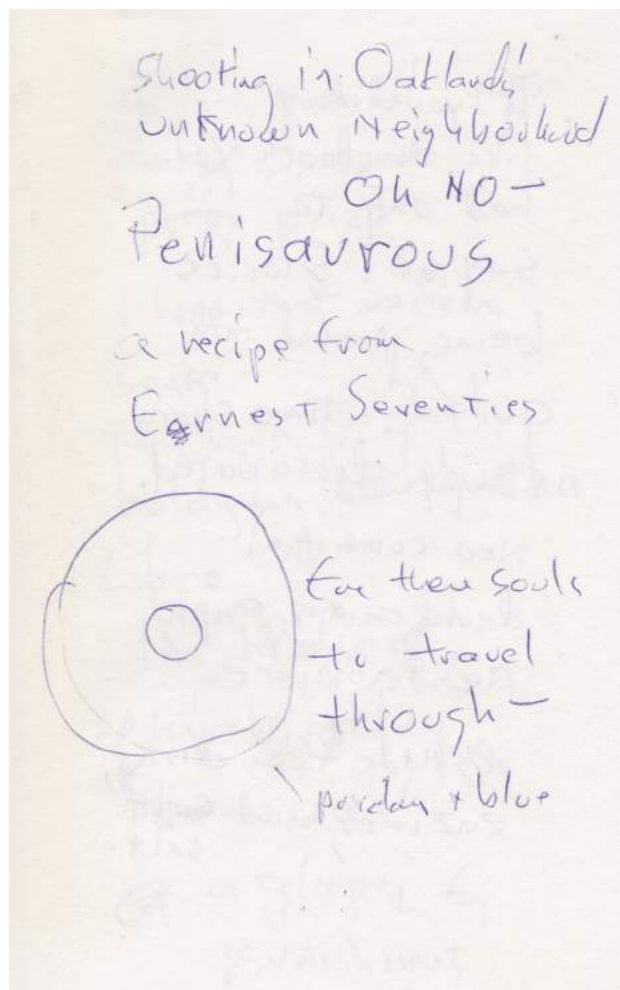 Shooting in Oakland's
unknown Neighborhood
Oh NO —
Penisaurous
a recipe from
Earnest Seventies
For their souls
to travel
through —
+ blue